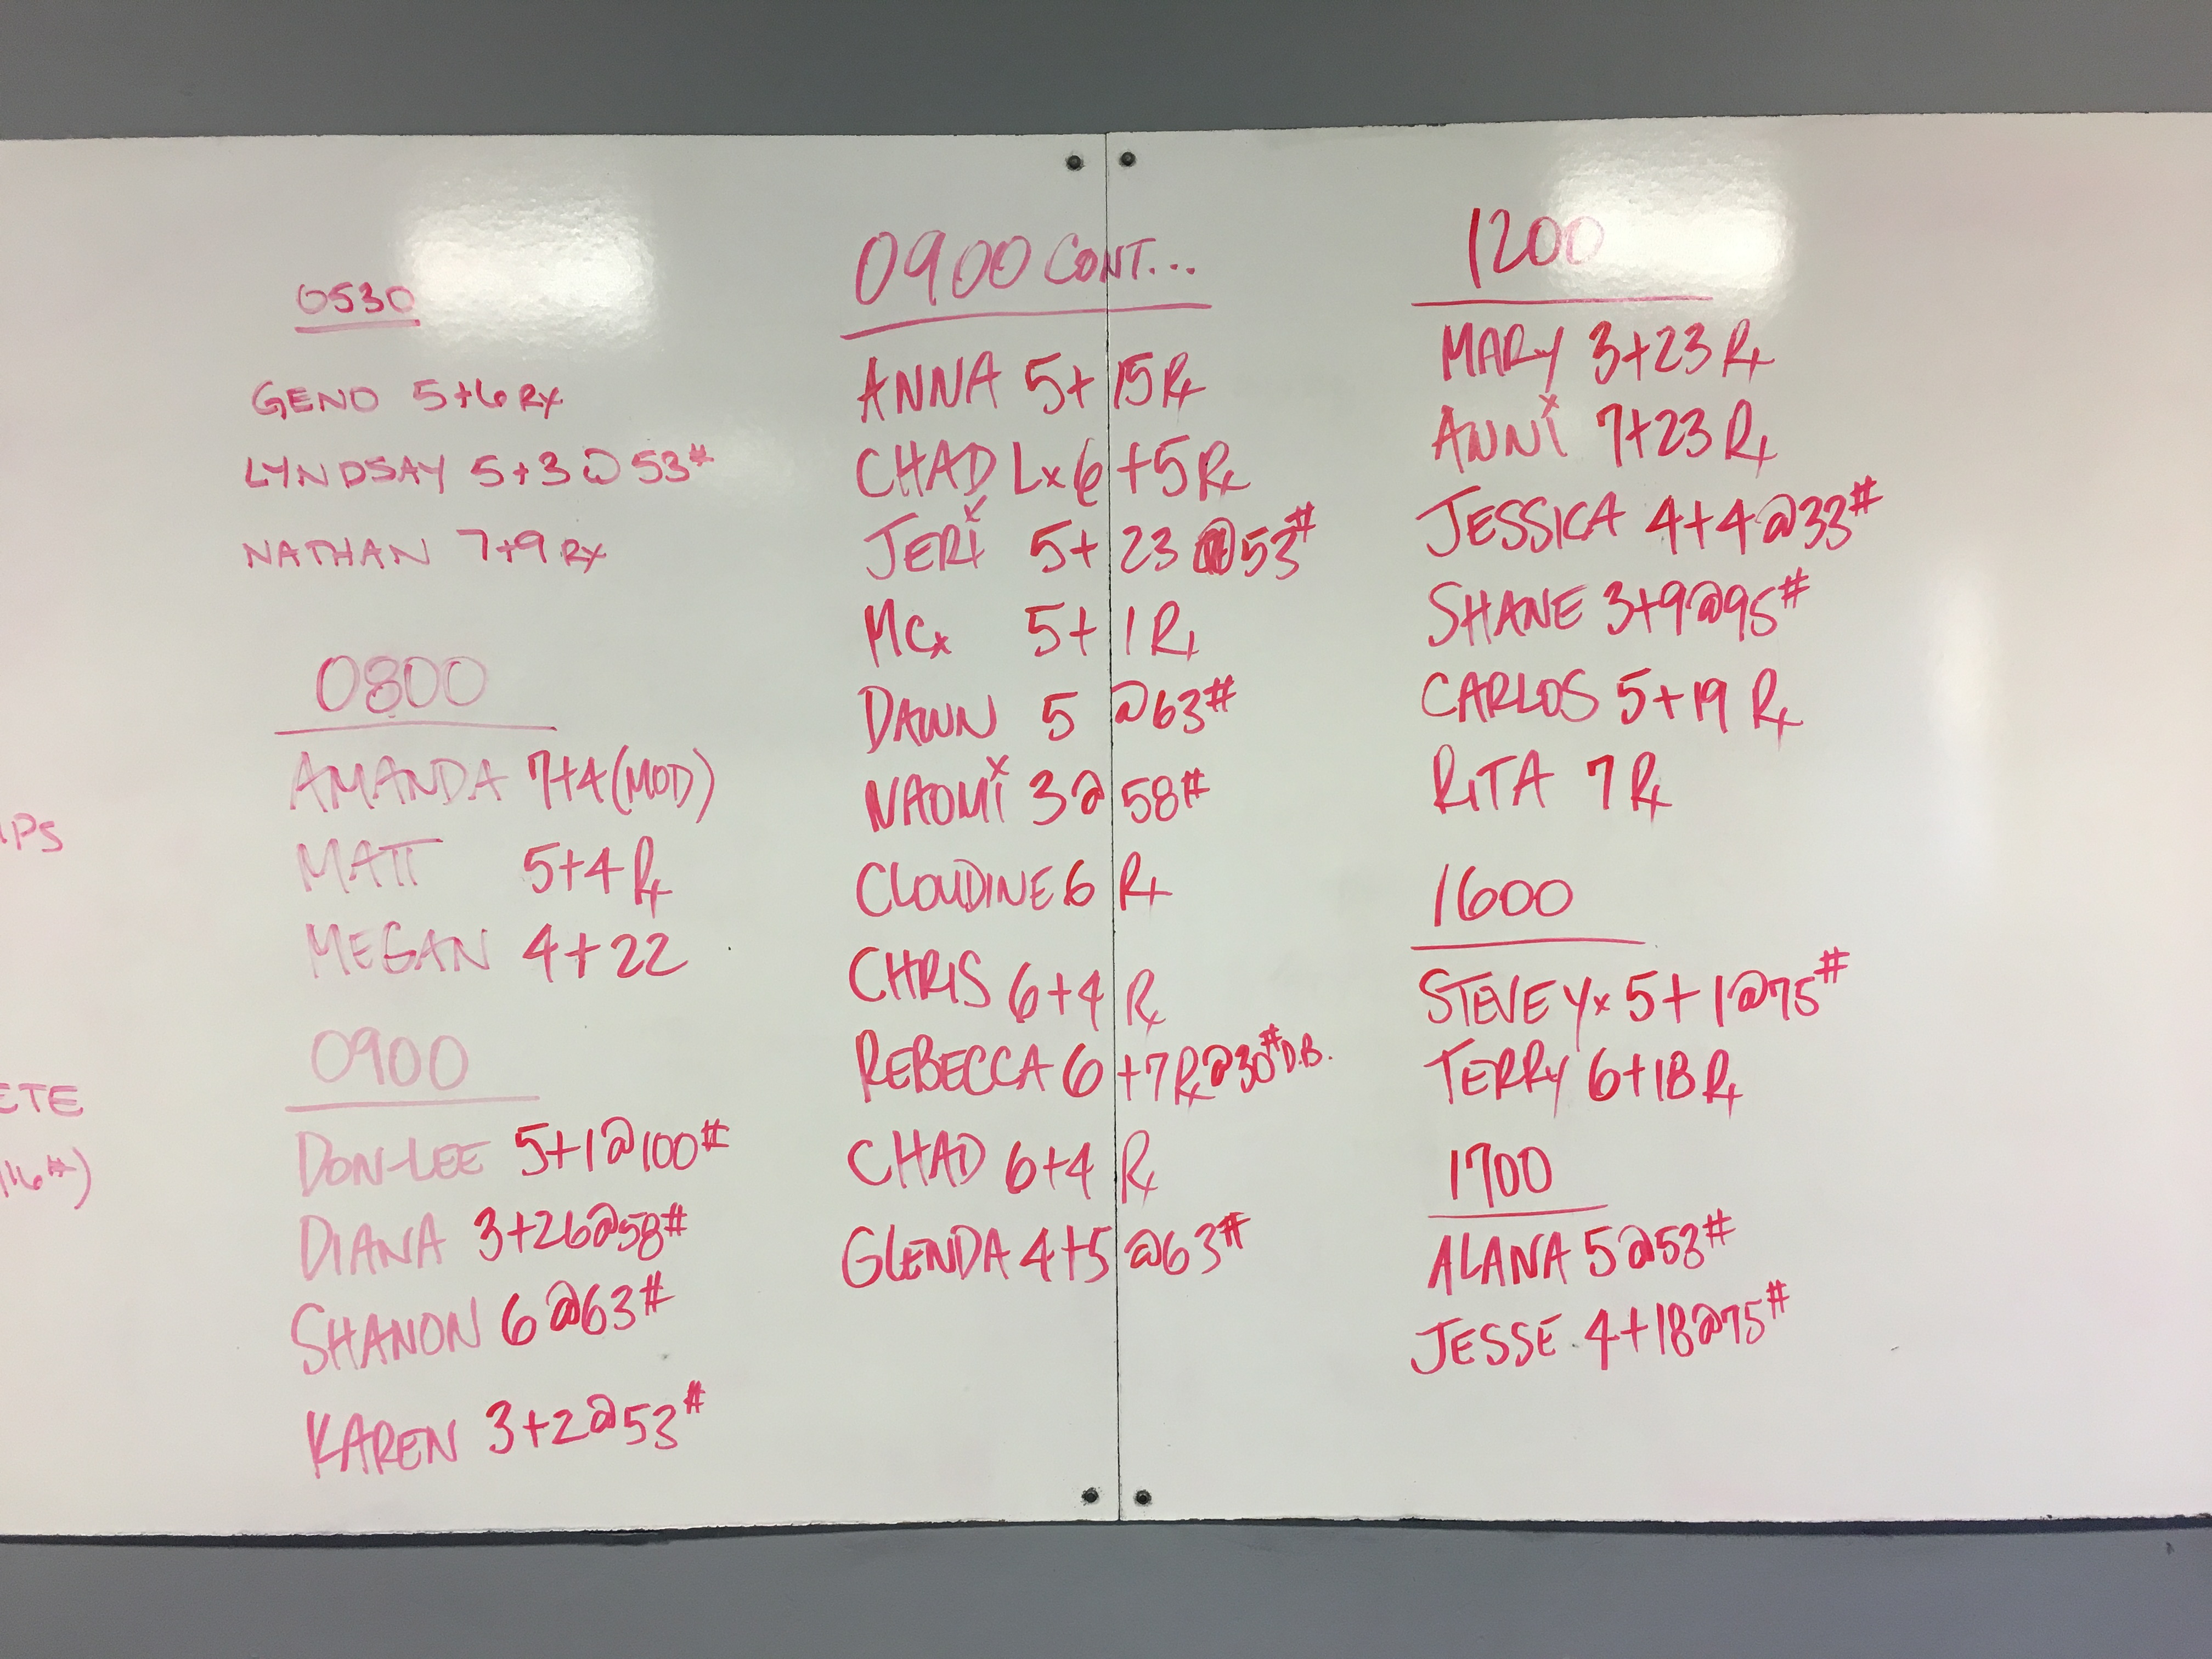 0530
GENO 5+6 Rx
LYNDSAY 5+3 @ 53#
NATHAN 7+9 Rx
0800
AMANDA 7+4 (MOD)
MATT 5+4 Rx
MEGAN 4+22
0900
DON-LEE 5+1@100#
DIANA 3+26@58#
SHANON 6@63#
KAREN 3+2@53#
IPS
ETE
16#)
0900 CONT...
ANNA 5+15 Rx
CHAD Lx 6+5 Rx
JERi 5+23 @53#
MCx 5+1 Rx
DAWN 5 @63#
NAOMi 3@58#
CLOUDINE 6 Rx
CHRIS 6+4 Rx
REBECCA 6+7 Rx@30# D.B.
CHAD 6+4 Rx
GLENDA 4+5 @63#
1200
MARY 3+23 Rx
ANNi 7+23 Rx
JESSICA 4+4@33#
SHANE 3+9@95#
CARLOS 5+19 Rx
RiTA 7 Rx
1600
STEVE Yx 5+1@75#
TERRY 6+18 Rx
1700
ALANA 5@53#
JESSE 4+18@75#